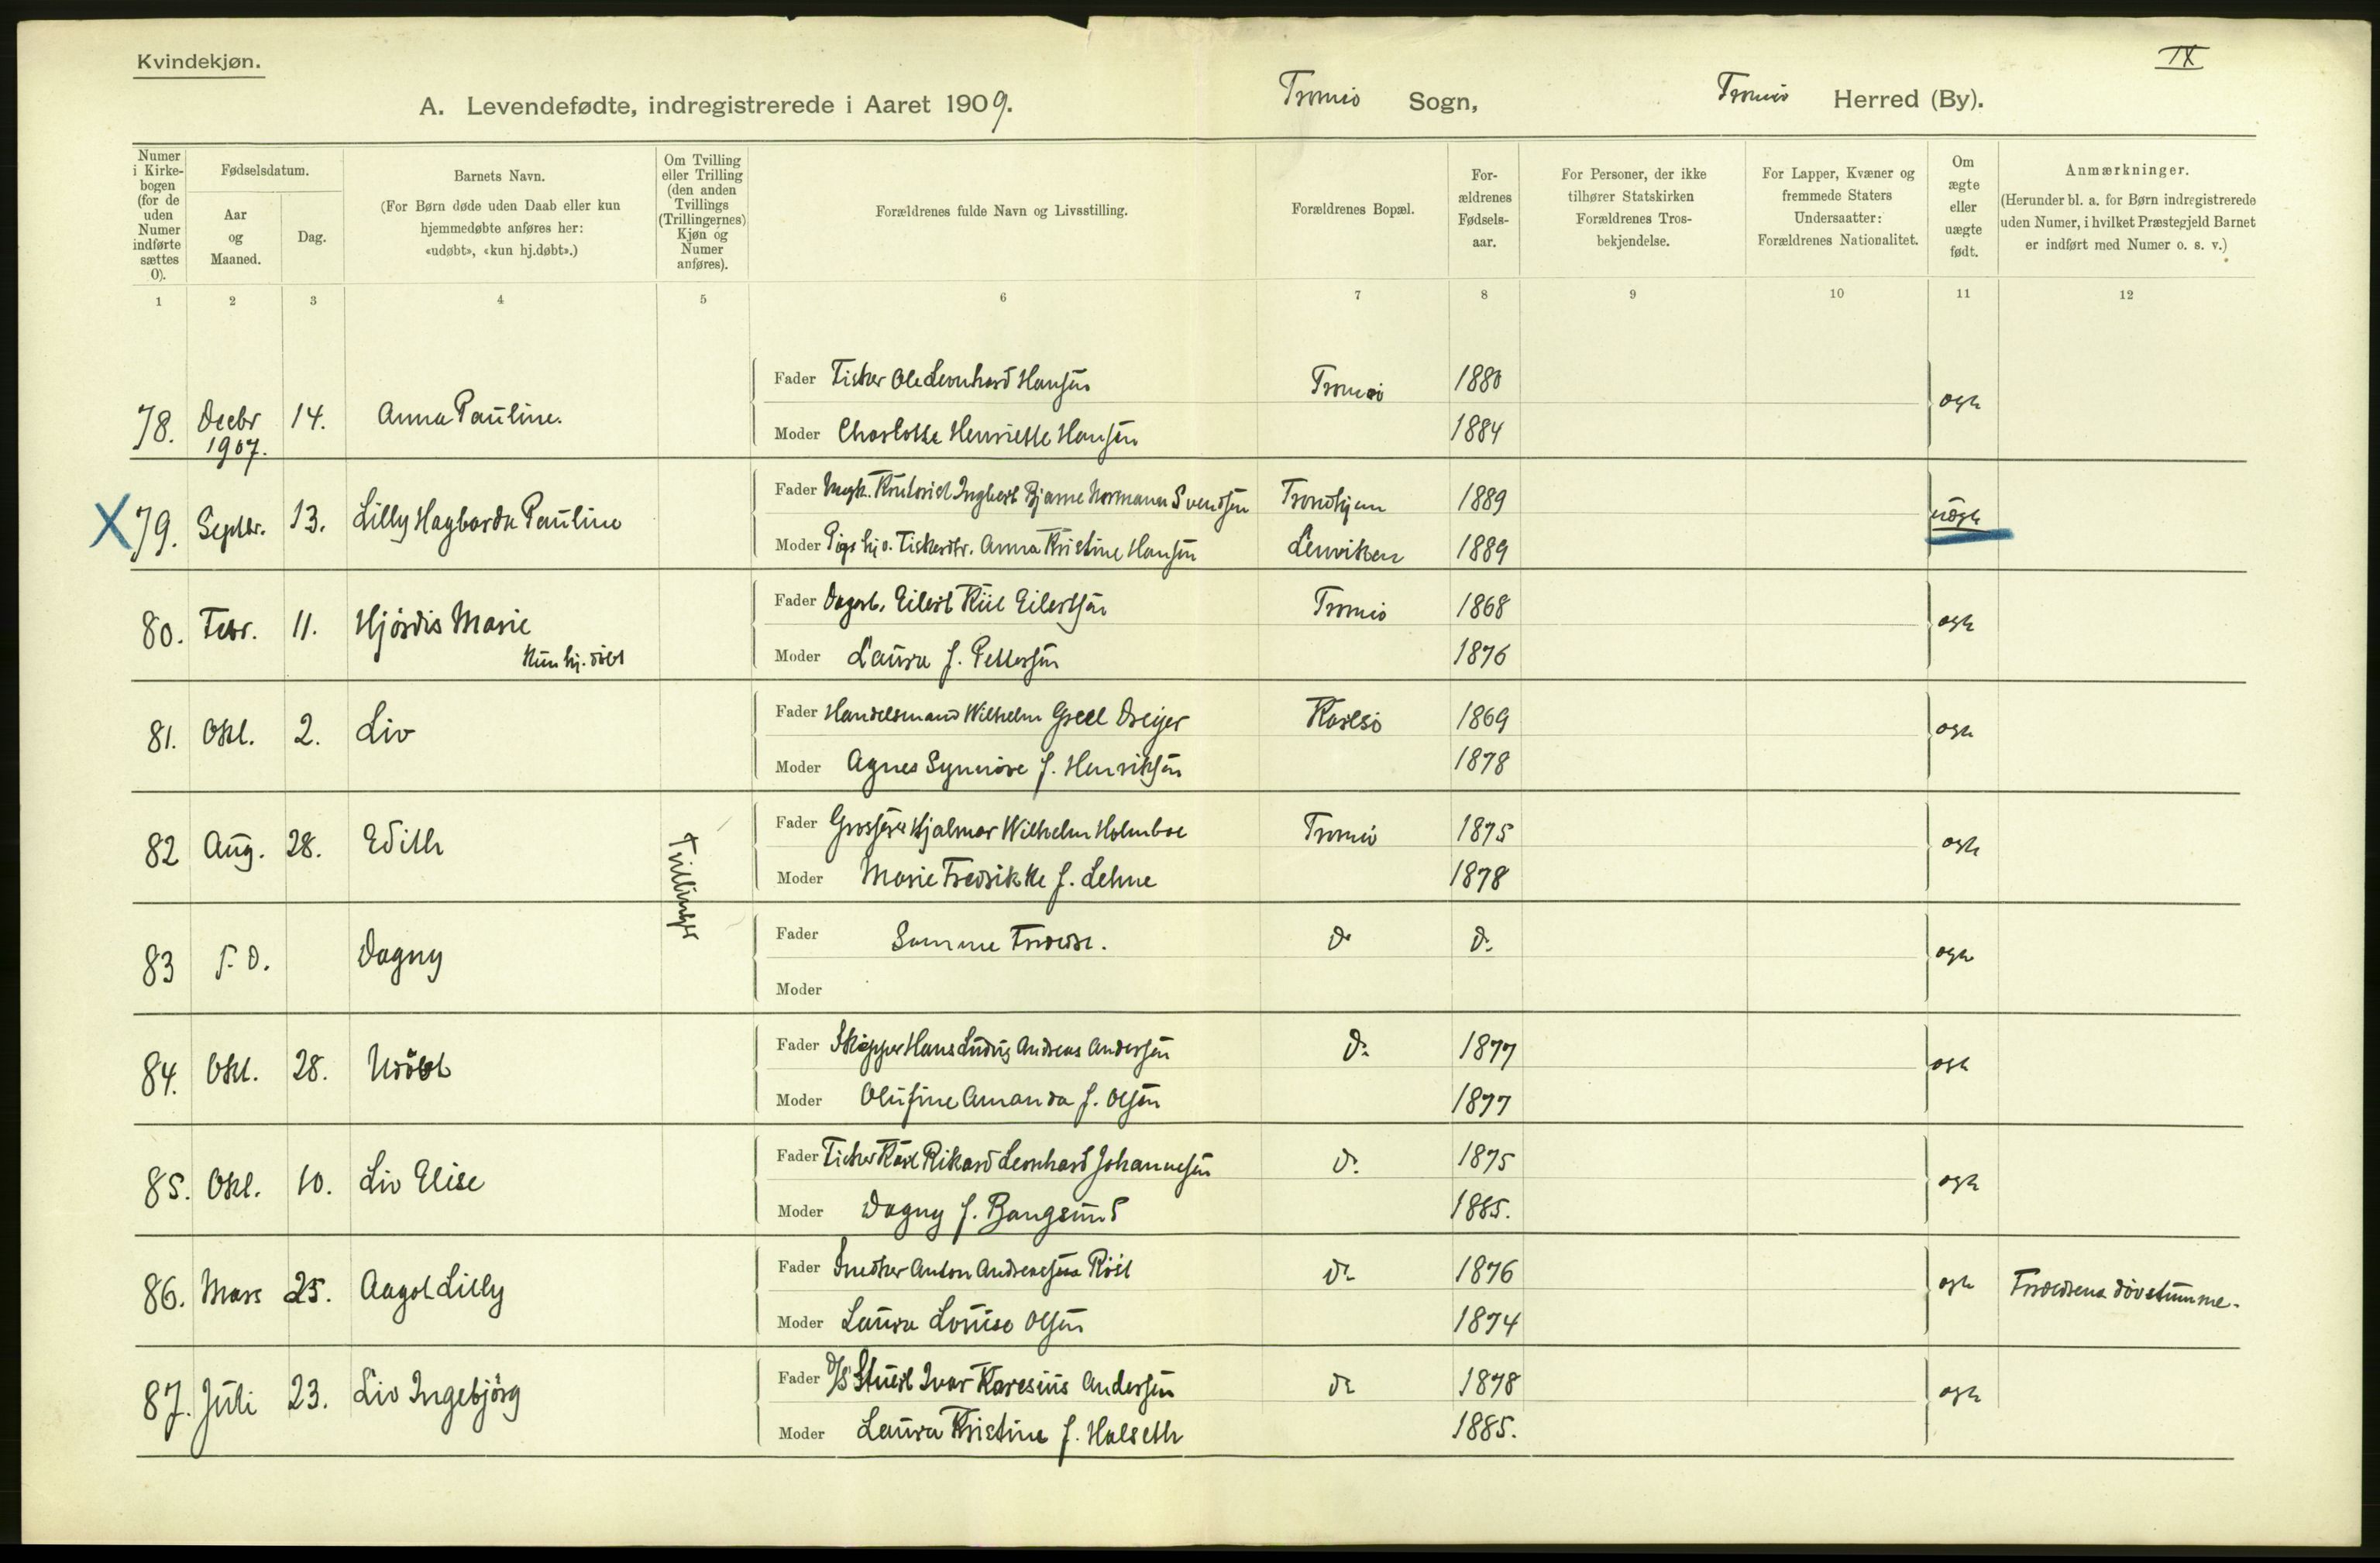 Kvindekjøn.
IX
A. Levendefødte, indregistrerede i Aaret 1909.
Tromsø Sogn,
Tromsø Herred (By).
Numer i Kirkebogen (for de uden Numer indførte sættes 0).
Fødselsdatum.
Aar og Maaned.
Dag.
Barnets Navn.
(For Børn døde uden Daab eller kun hjemmedøbte anføres her: «udøbt», «kun hj.døbt».)
Om Tvilling eller Trilling (den anden Tvillings (Trillingernes) Kjøn og Numer anføres).
Forældrenes fulde Navn og Livsstilling.
Forældrenes Bopæl.
Forældrenes Fødselsaar.
For Personer, der ikke tilhører Statskirken Forældrenes Trosbekjendelse.
For Lapper, Kvæner og fremmede Staters Undersaatter: Forældrenes Nationalitet.
Om ægte eller uægte født.
Anmærkninger.
(Herunder bl. a. for Børn indregistrerede uden Numer, i hvilket Præstegjeld Barnet er indført med Numer o. s. v.)
1 2 3 4 5 6 7 8 9 10 11 12
78. Decbr 1907. 14. Anna Pauline.
Fader Fisker Ole Leonhard Hansen Tromsø 1880 ægte
Moder Charlotte Henriette Hansen 1884
X 79. Septbr. 13. Lilly Hagbarda Pauline
Fader Ingbert Bjarne Normann Svendsen Trondhjem 1889 uægte
Moder Pige hj. v. Fiskerdtr. Anna Kristine Hansen Lenviken 1889
80. Febr. 11. Hjørdis Marie
Kun hj. døbt
Fader Dagarb. Eilert Kiil Eilertsen Tromsø 1868 ægte
Moder Laura f. Pettersen 1876
81. Okt. 2. Liv
Fader Handelsmand Wilhelm Grell Dreyer Karlsø 1869 ægte
Moder Agnes Synnøve f. Henriksen 1878
82 Aug. 28. Edith
Tvillinger
Fader Grosserer Hjalmar Wilhelm Holmboe Tromsø 1875 ægte
Moder Marie Fredrikke f. Lehne 1878
83 s. D. Dagny
Fader Samme Forældre. do do ægte
Moder
84. Okt. 28. Udøbt
Fader Skipper Hans Ludvig Andreas Andersen do 1877 ægte
Moder Olufine Amanda f. Olsen 1877
85. Okt. 10. Liv Elise
Fader Fisker Karl Rikard Leonhard Johannesen do 1875 ægte
Moder Dagny f. Bangsund 1885.
86. Mars 25. Aagot Lilly
Fader Snedker Anton Andreassen Röst do 1876 ægte Forældrene døvstumme.
Moder Laura Louise Olsen 1874
87. Juli 23. Liv Ingebjørg
Fader D/S Stuert Ivar Karesius Andersen do 1878 ægte
Moder Laura Kristine f. Halseth 1885.